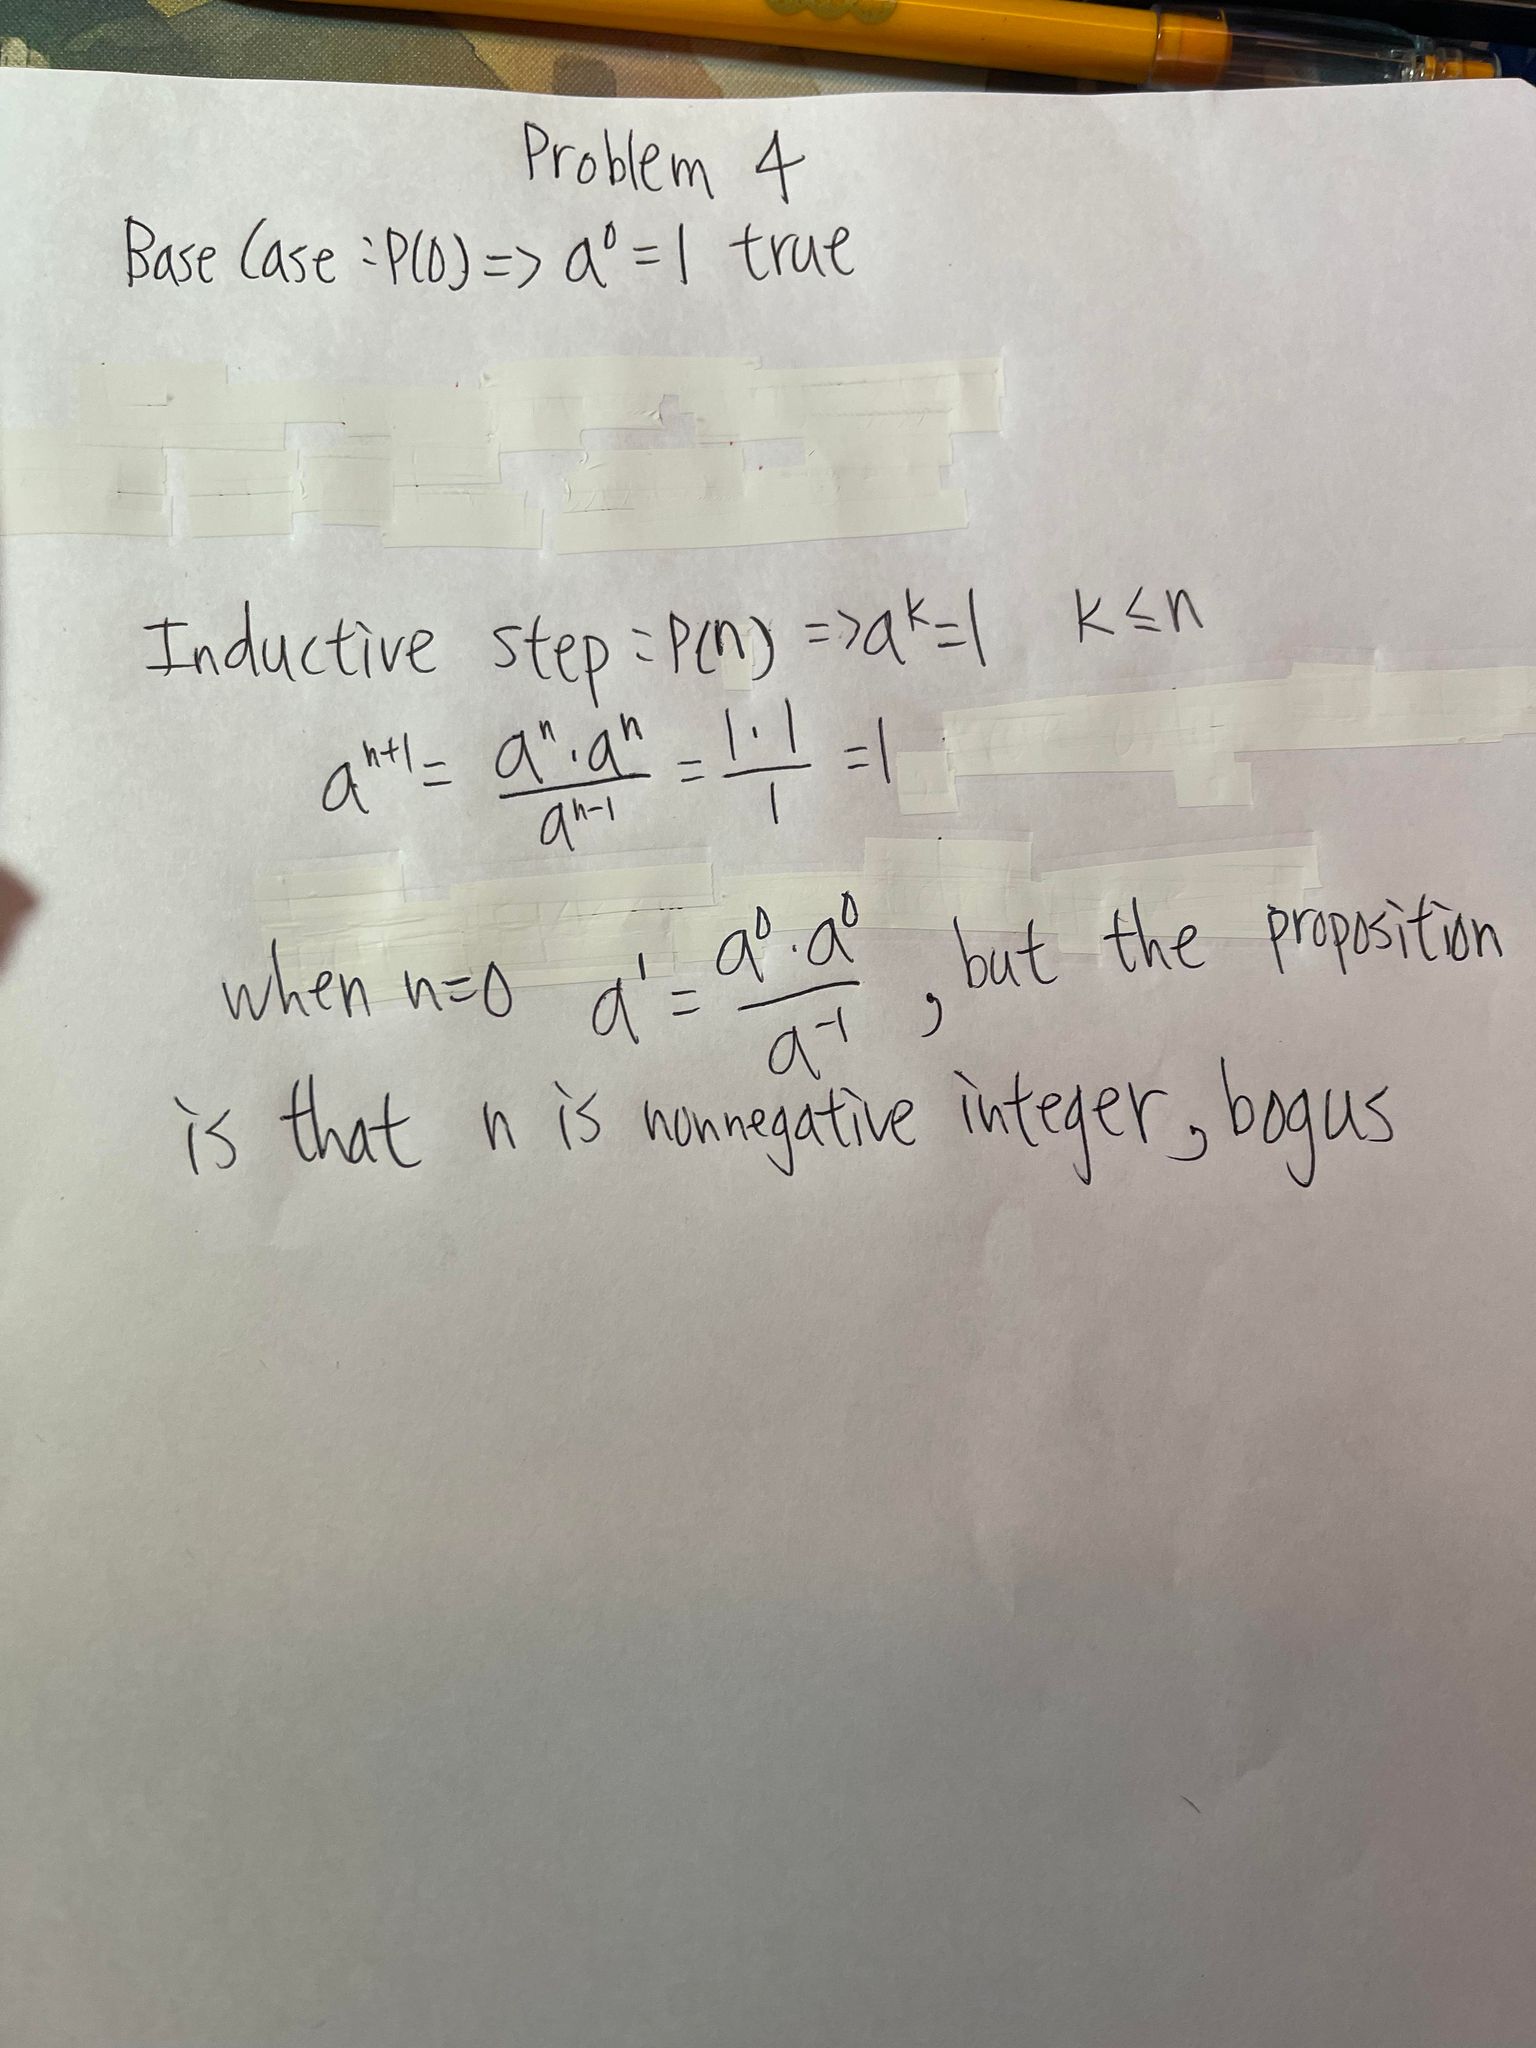 Problem 4
Base Case : P(0) => a⁰ = 1 true
Inductive step : P(n) => aᵏ = 1 k ≤ n
aⁿ⁺¹ = (aⁿ · aⁿ)/(aⁿ⁻¹) = (1 · 1)/1 = 1
when n=0 a¹ = (a⁰ · a⁰)/(a⁻¹) , but the proposition
is that n is nonnegative integer, bogus